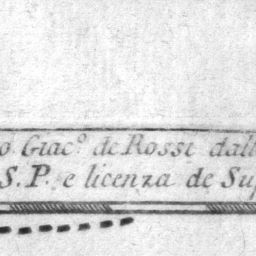 o Giac.º de Rossi dall
S.P. e licenza de Sup